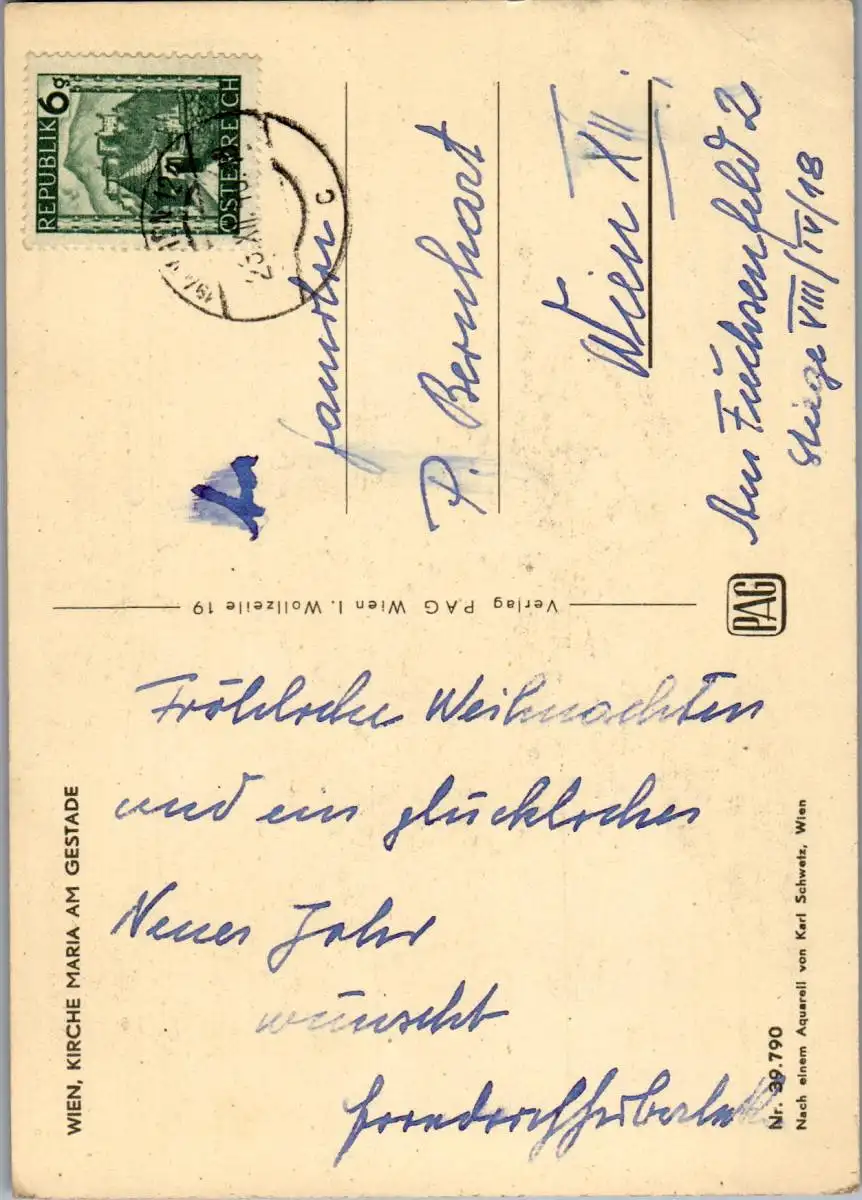 REPUBLIK
6g
ÖSTERREICH
WIEN
23. XII.
c
Familie
P. Bernhart
Wien XII.
Am Fuchsenfeld 2
Stiege VIII/IV/18
Verlag PAG Wien I. Wollzeile 19
PAG
Fröhliche Weihnachten
und ein glückliches
Neues Jahr
wünscht
WIEN, KIRCHE MARIA AM GESTADE
Nr. 39.790
Nach einem Aquarell von Karl Schwetz, Wien